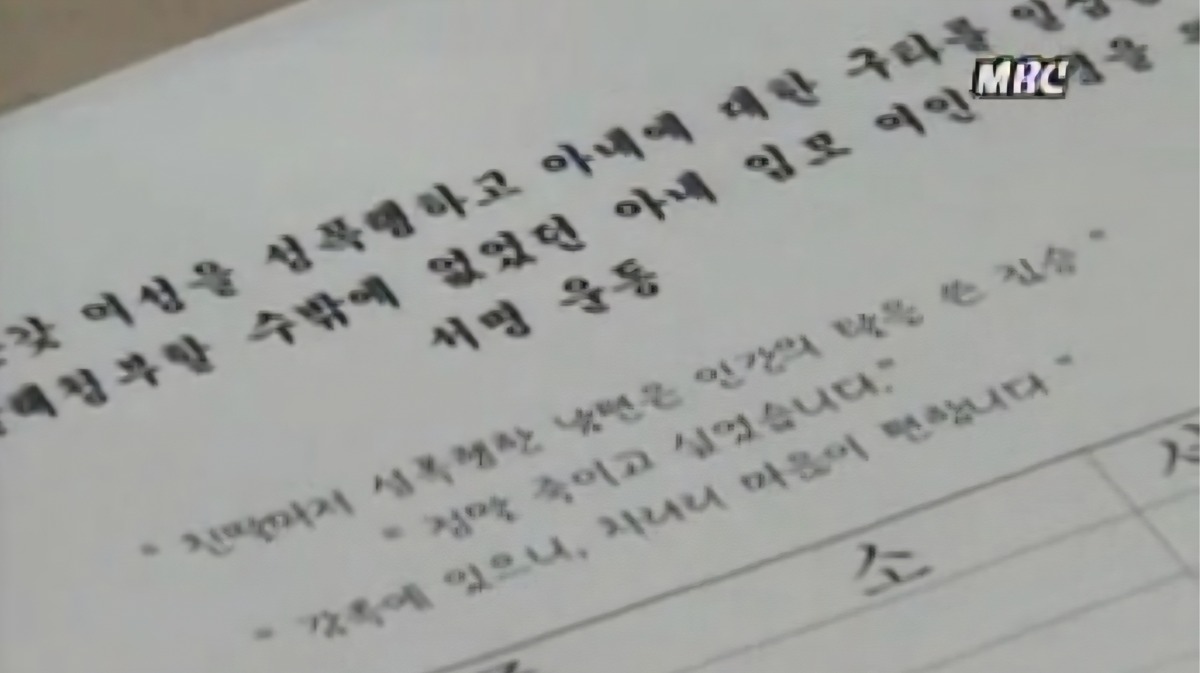 갖 여성을 성폭행하고 아내에 대한 구타를
수밖에 없었던 아내 임모 여인
서명 운동
" 친딸마저 성폭행한 남편은 인간의 탈을 쓴 짐승 "
" 정말 죽이고 싶었습니다."
" 감옥에 있으니, 차라리 마음이 편합니다 "
소
MBC